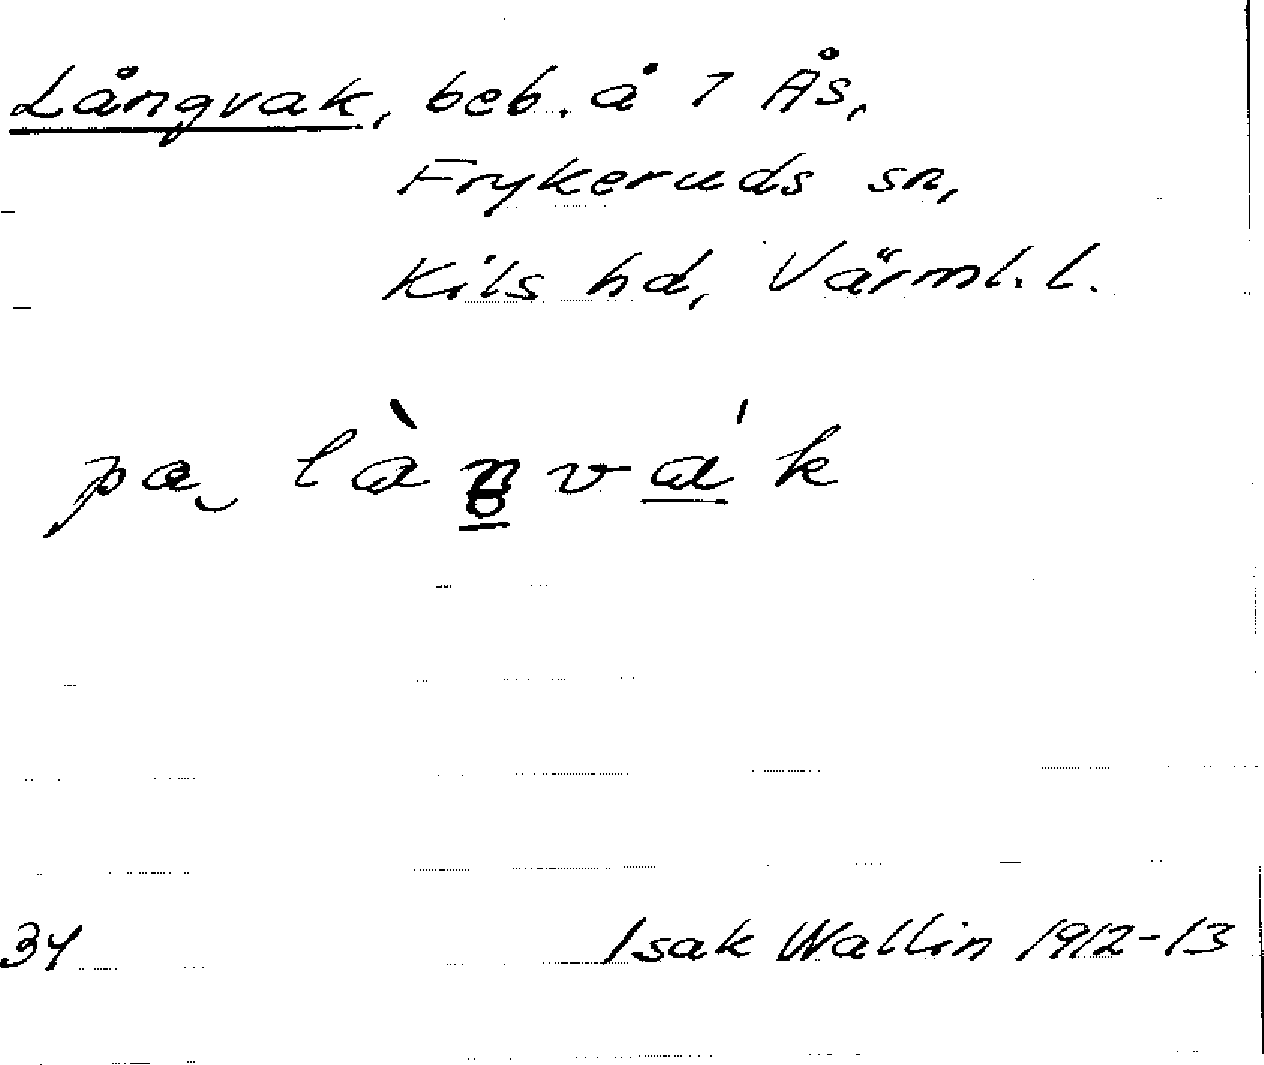 Långvak, beb. å 7 Ås,
Frykeruds sn,
Kils hd, Värml. l.
pa làŋvák
34 Isak Wallin 1912-13